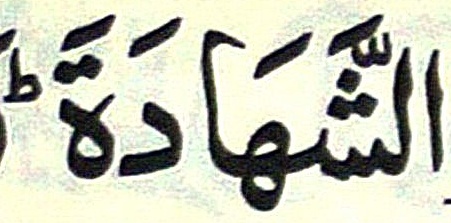 الشَّهَادَةَ ؕ